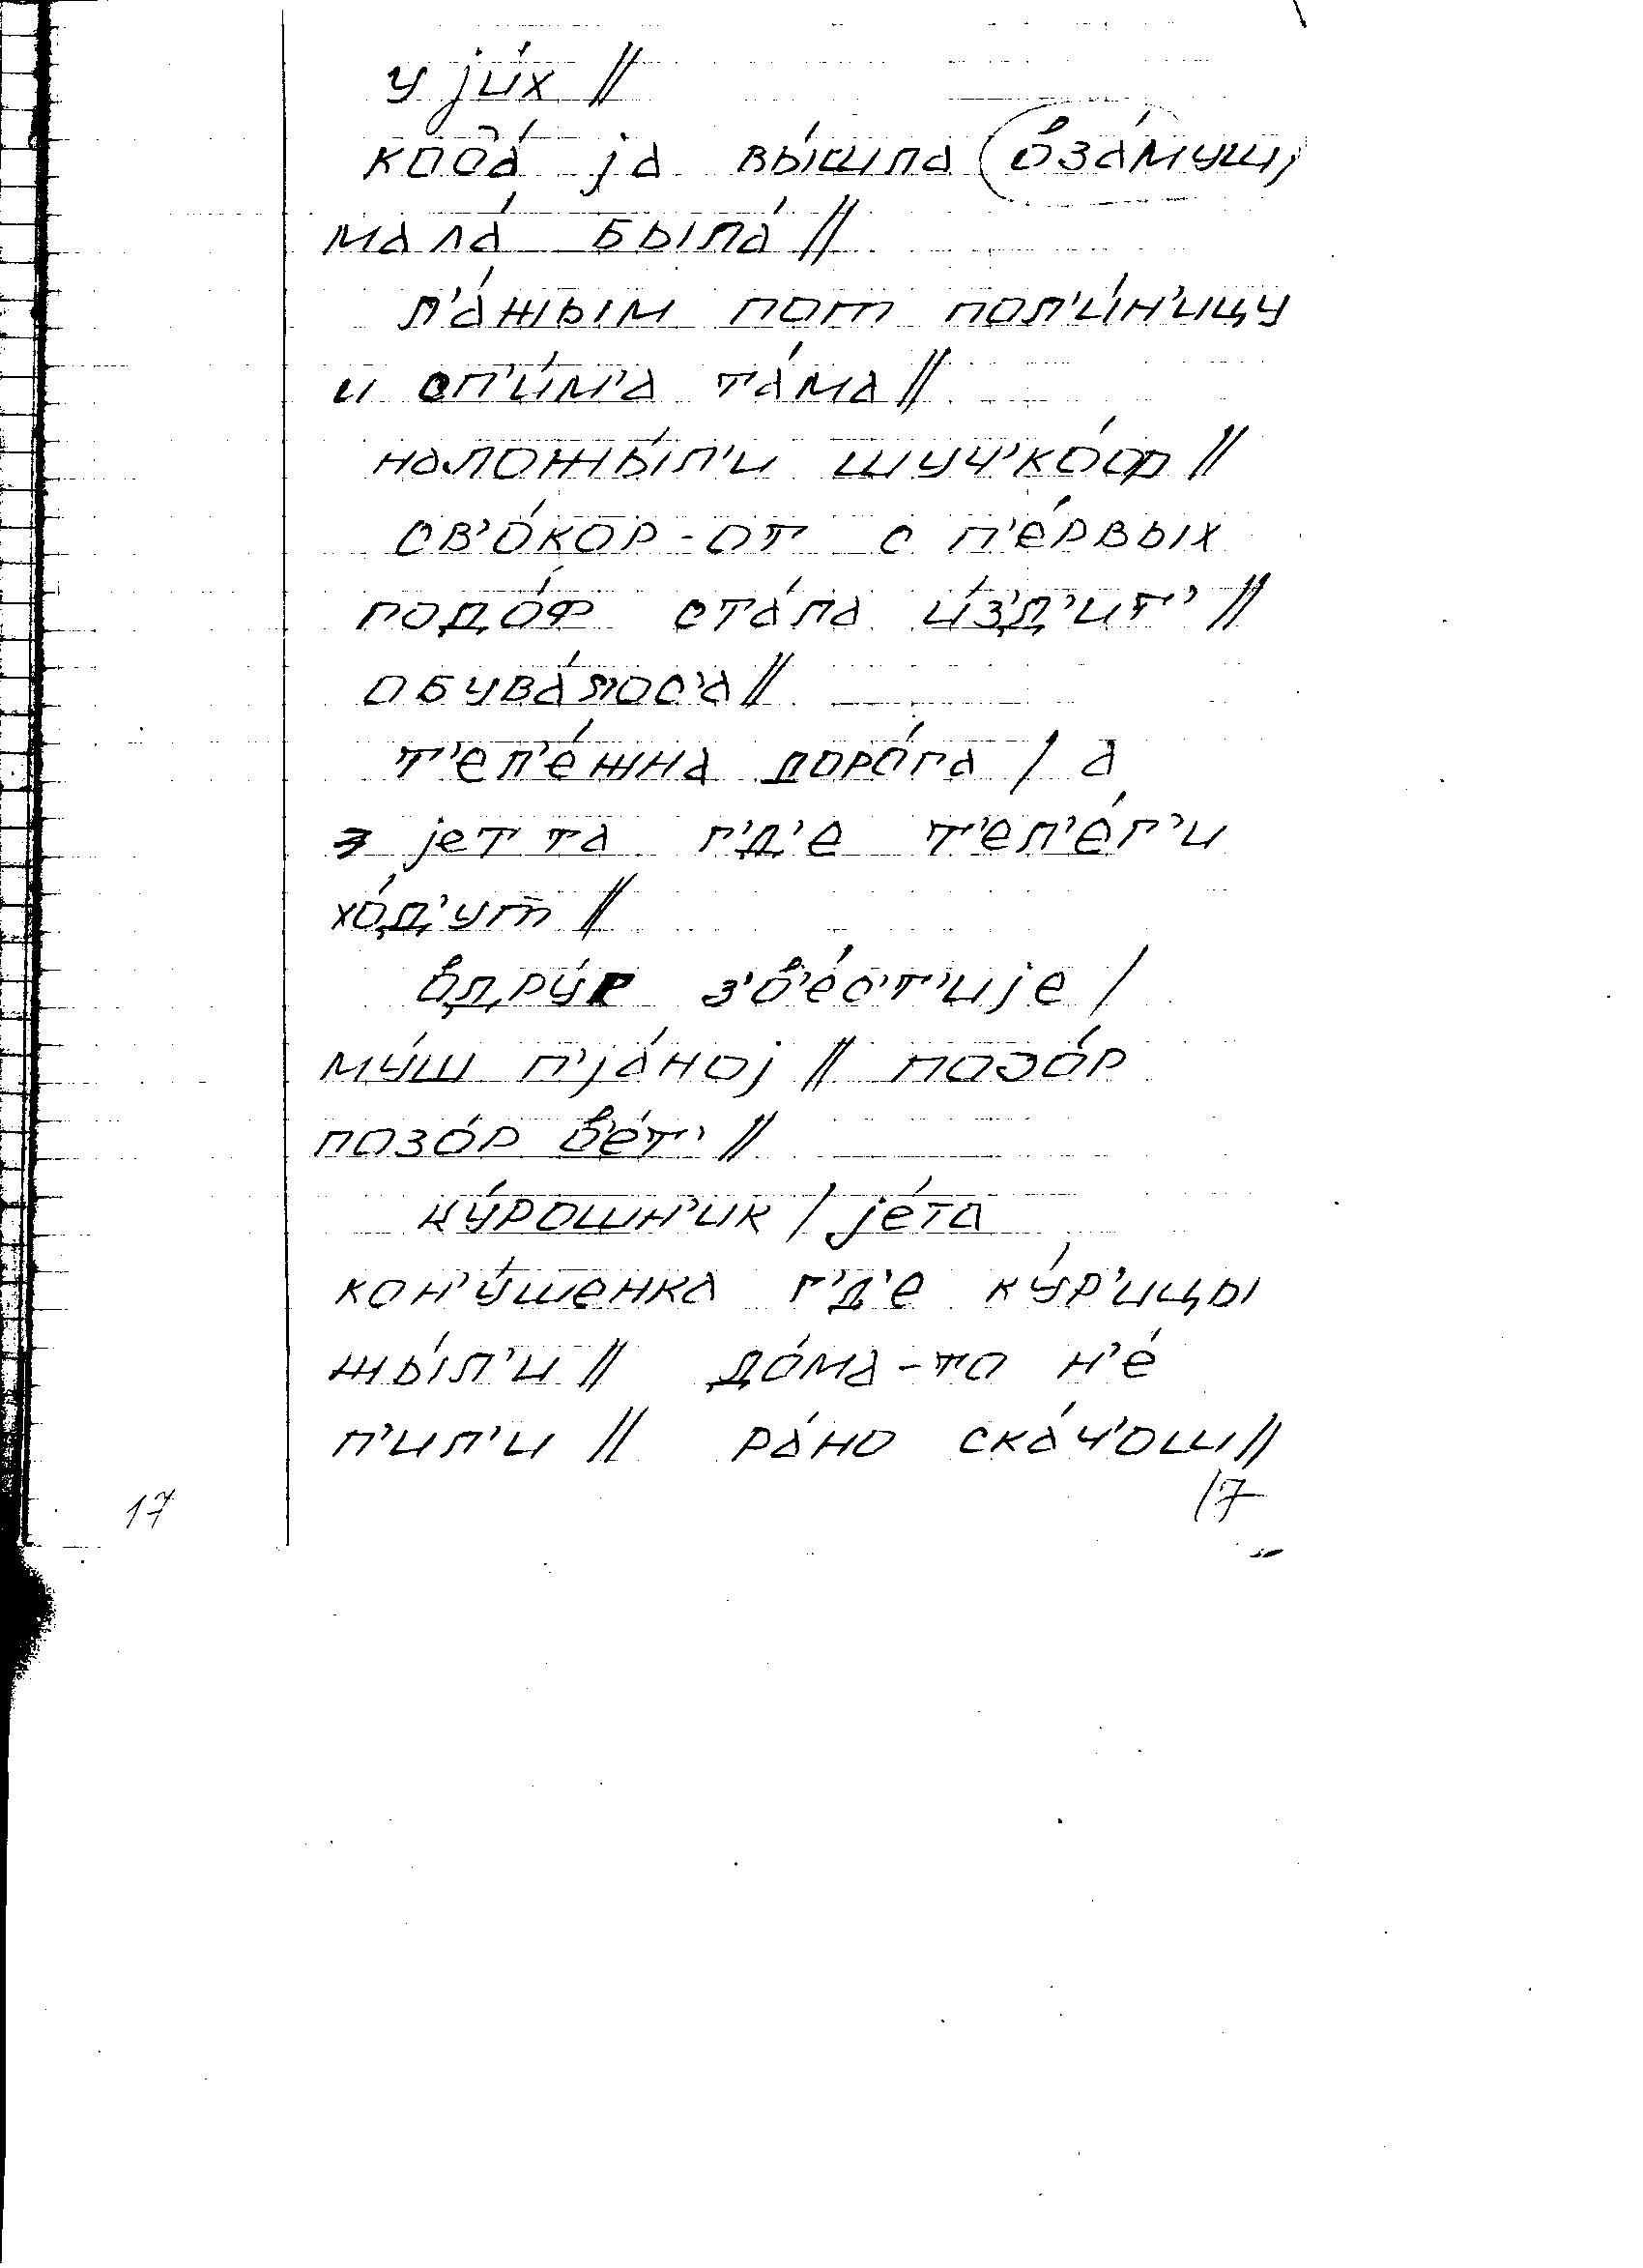 у jи́х //
кода́ jа вы́шла взámуш,
мала́ была́ //
л'а́жым пот пол'и́н'ицу
и сп'и́м'а та́ма //
наложы́л'и шуч'ко́ф //
св'о́кор-от с п'е́рвых
подо́ф ста́ла и́з'д'ит' //
обува́л'ос'а //
т'ел'е́жна доро́га / а
э jет та г'д'е т'ел'е́г'и
хо́д'ут //
вдру́к з'в'е́с'т'иjе /
му́ш п'jа́ноj // позо́р
позо́р в'е́т' //
ку́рошн'ик / jе́та
кон'у́шенка г'д'е ку́р'ицы
жы́л'и // до́ма-то н'е́
п'ил'и // ра́но ска́ч'ош //
17
17